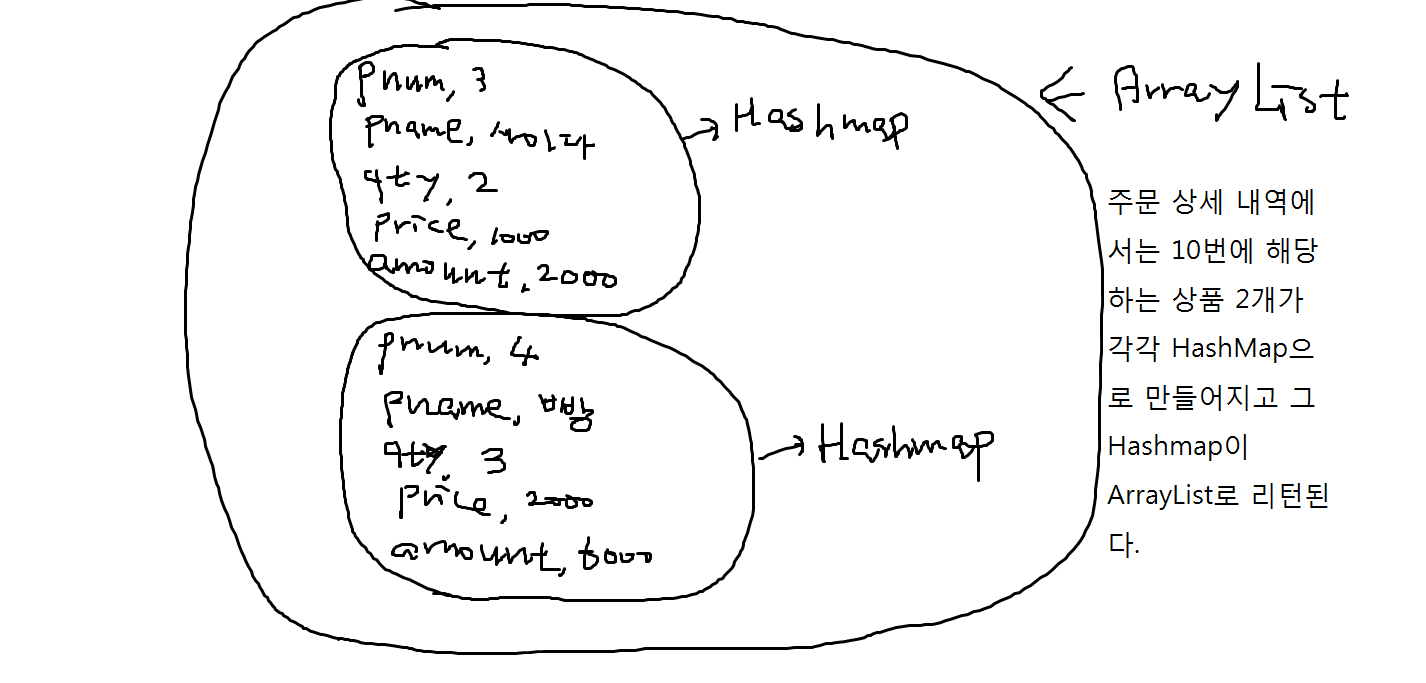 pnum, 3
pname, 사이다
qty, 2
price, 1000
amount, 2000
→ Hashmap
← ArrayList
pnum, 4
pname, 빼빵
qty, 3
price, 2000
amount, 6000
→ Hashmap
주문 상세 내역에
서는 10번에 해당
하는 상품 2개가
각각 HashMap으
로 만들어지고 그
Hashmap이
ArrayList로 리턴된
다.